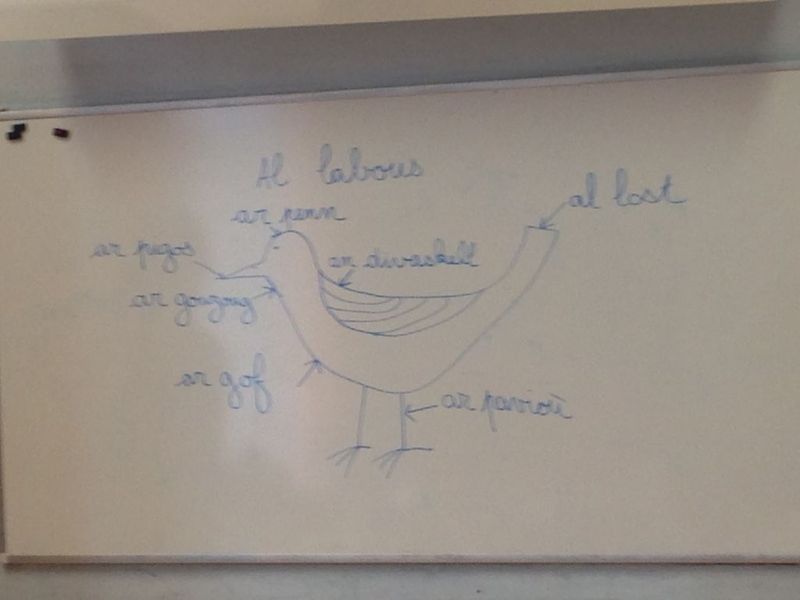 Al labous
ar penn
al lost
ar pigos
an divaskell
ar gouzoug
ar gof
ar pavioù